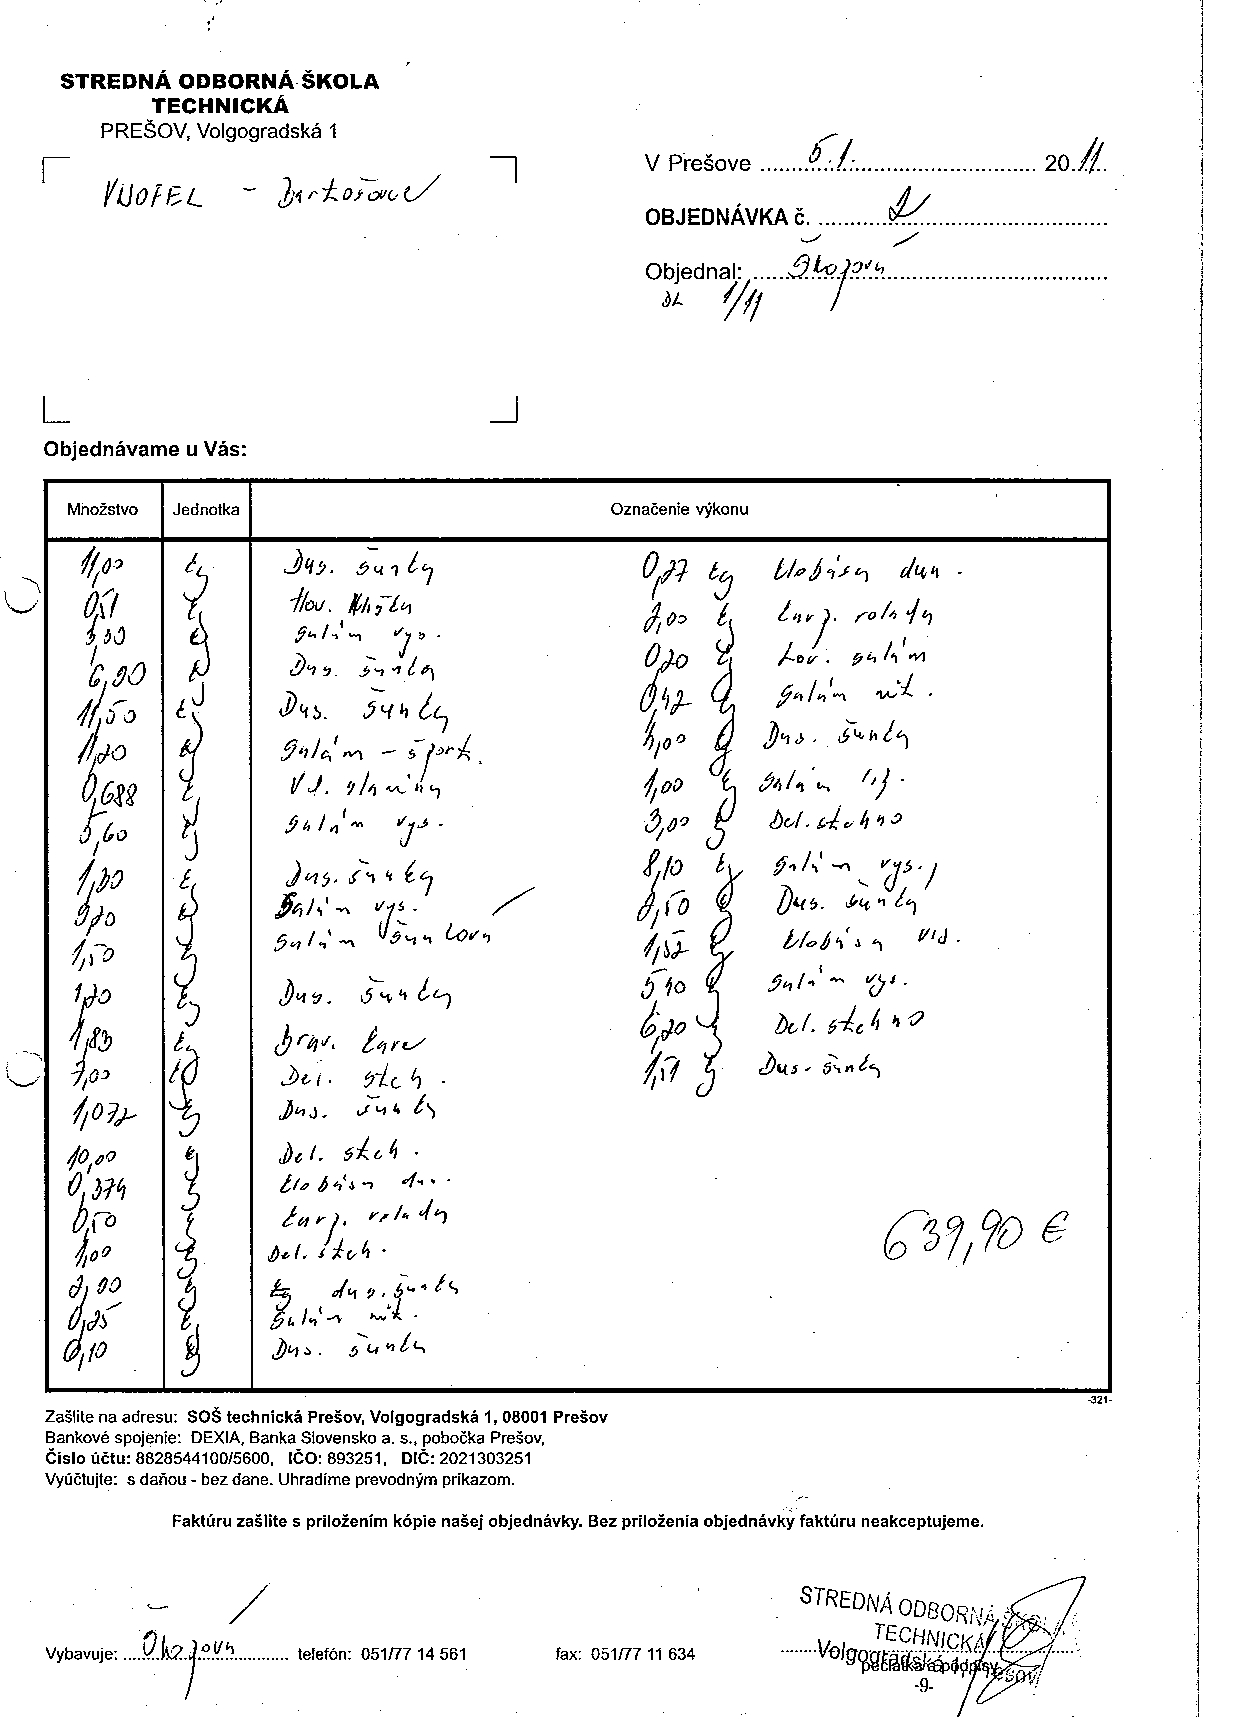 STREDNÁ ODBORNÁ ŠKOLA
TECHNICKÁ
PREŠOV, Volgogradská 1
V Prešove 5.1. 2011
OBJEDNÁVKA č. 2
Objednal:
DL 1/11
Objednávame u Vás:
Množstvo Jednotka Označenie výkonu
11,00 kg Dus. šunka
0,51 kg Hov.
3,30 kg salám vys.
6,90 kg Dus. šunka
11,50 kg Dus. šunka
1,20 kg Salám - šport.
0,688 kg
5,60 kg salám vys.
1,30 kg Dus. šunka
9,20 kg Salám vys.
1,50 kg Salám šunková
1,20 kg Dus. šunka
1,83 kg brav. kare
7,00 kg Del. steh.
1,072 kg Dus. šunka
10,00 kg Del. steh.
0,374 kg klobása
0,50 kg rolády
1,00 kg Del. steh.
2,90 kg dus. šunka
0,25 kg Salám
0,10 kg Dus. šunka
0,77 kg klobása dun.
2,00 kg rolády
0,20 kg salám
0,42 kg salám
4,00 kg Dus. šunka
1,00 kg Salám
3,00 kg Del. stehno
8,10 kg salám vys.
2,50 kg Dus. šunka
1,52 kg klobása
5,10 kg salám vys.
6,20 kg Del. stehno
1,51 kg Dus. šunka
639,90 €
-321-
Zašlite na adresu: SOŠ technická Prešov, Volgogradská 1, 08001 Prešov
Bankové spojenie: DEXIA, Banka Slovensko a. s., pobočka Prešov,
Číslo účtu: 8828544100/5600, IČO: 893251, DIČ: 2021303251
Vyúčtujte: s daňou - bez dane. Uhradíme prevodným príkazom.
Faktúru zašlite s priložením kópie našej objednávky. Bez priloženia objednávky faktúru neakceptujeme.
STREDNÁ ODBORNÁ ŠKOLA
TECHNICKÁ
Volgogradská 1, Prešov
Vybavuje: telefón: 051/77 14 561 fax: 051/77 11 634
pečiatka a podpisy
-9-